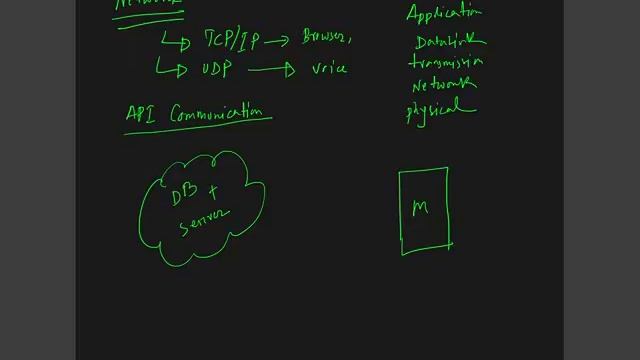 Network
↳ TCP/IP → Browser,
↳ UDP → voice
Application
DataLink
transmission
Network
physical
API Communication
DB +
server
M